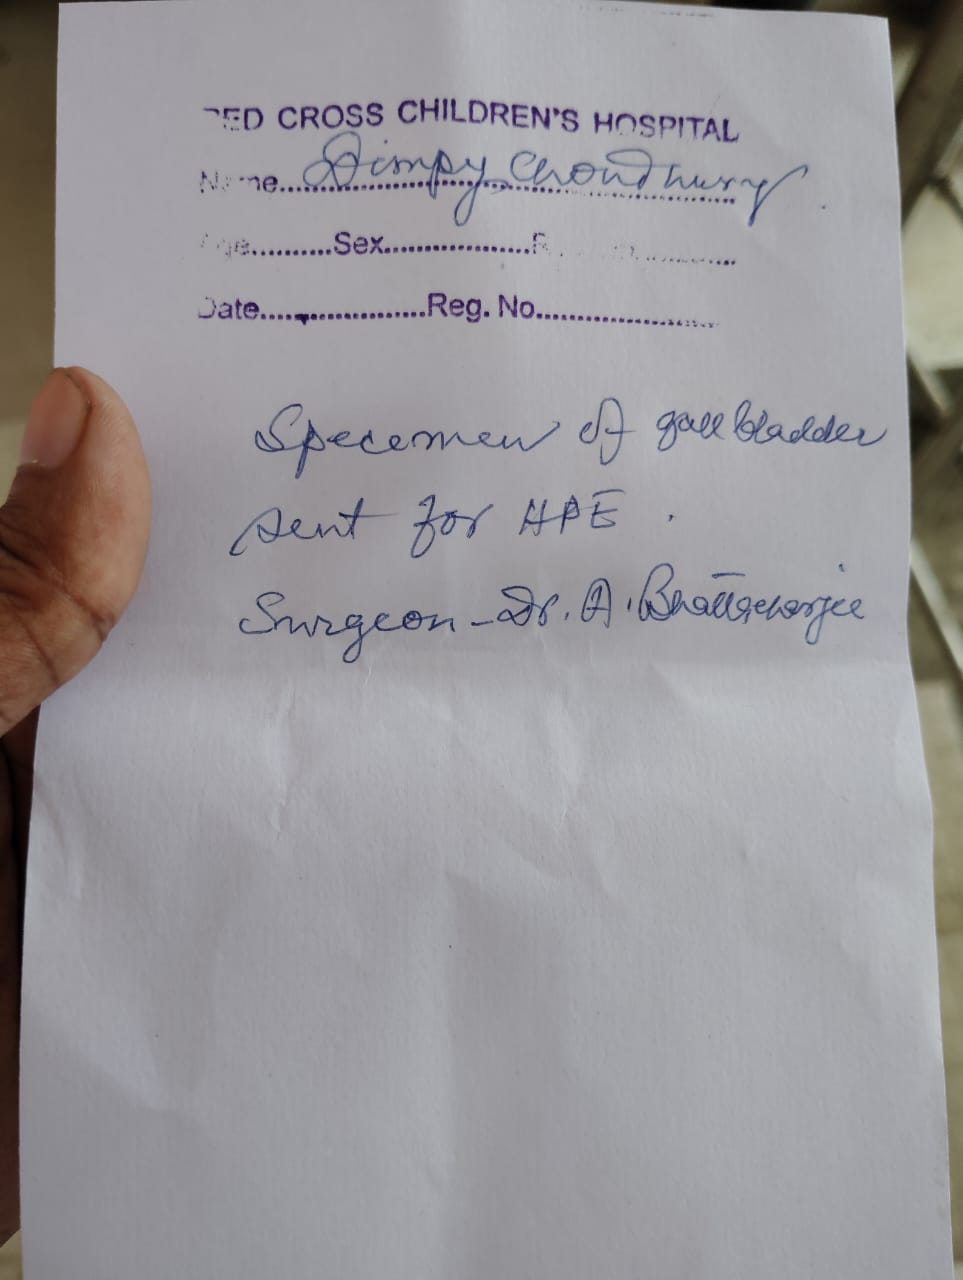 RED CROSS CHILDREN'S HOSPITAL
Name.......Dimpy Choudhury.
Age..........Sex..................
Date......................Reg. No........................
Specemen of gall bladder
sent for HPE.
Surgeon - Dr. A. Bhattacharjee